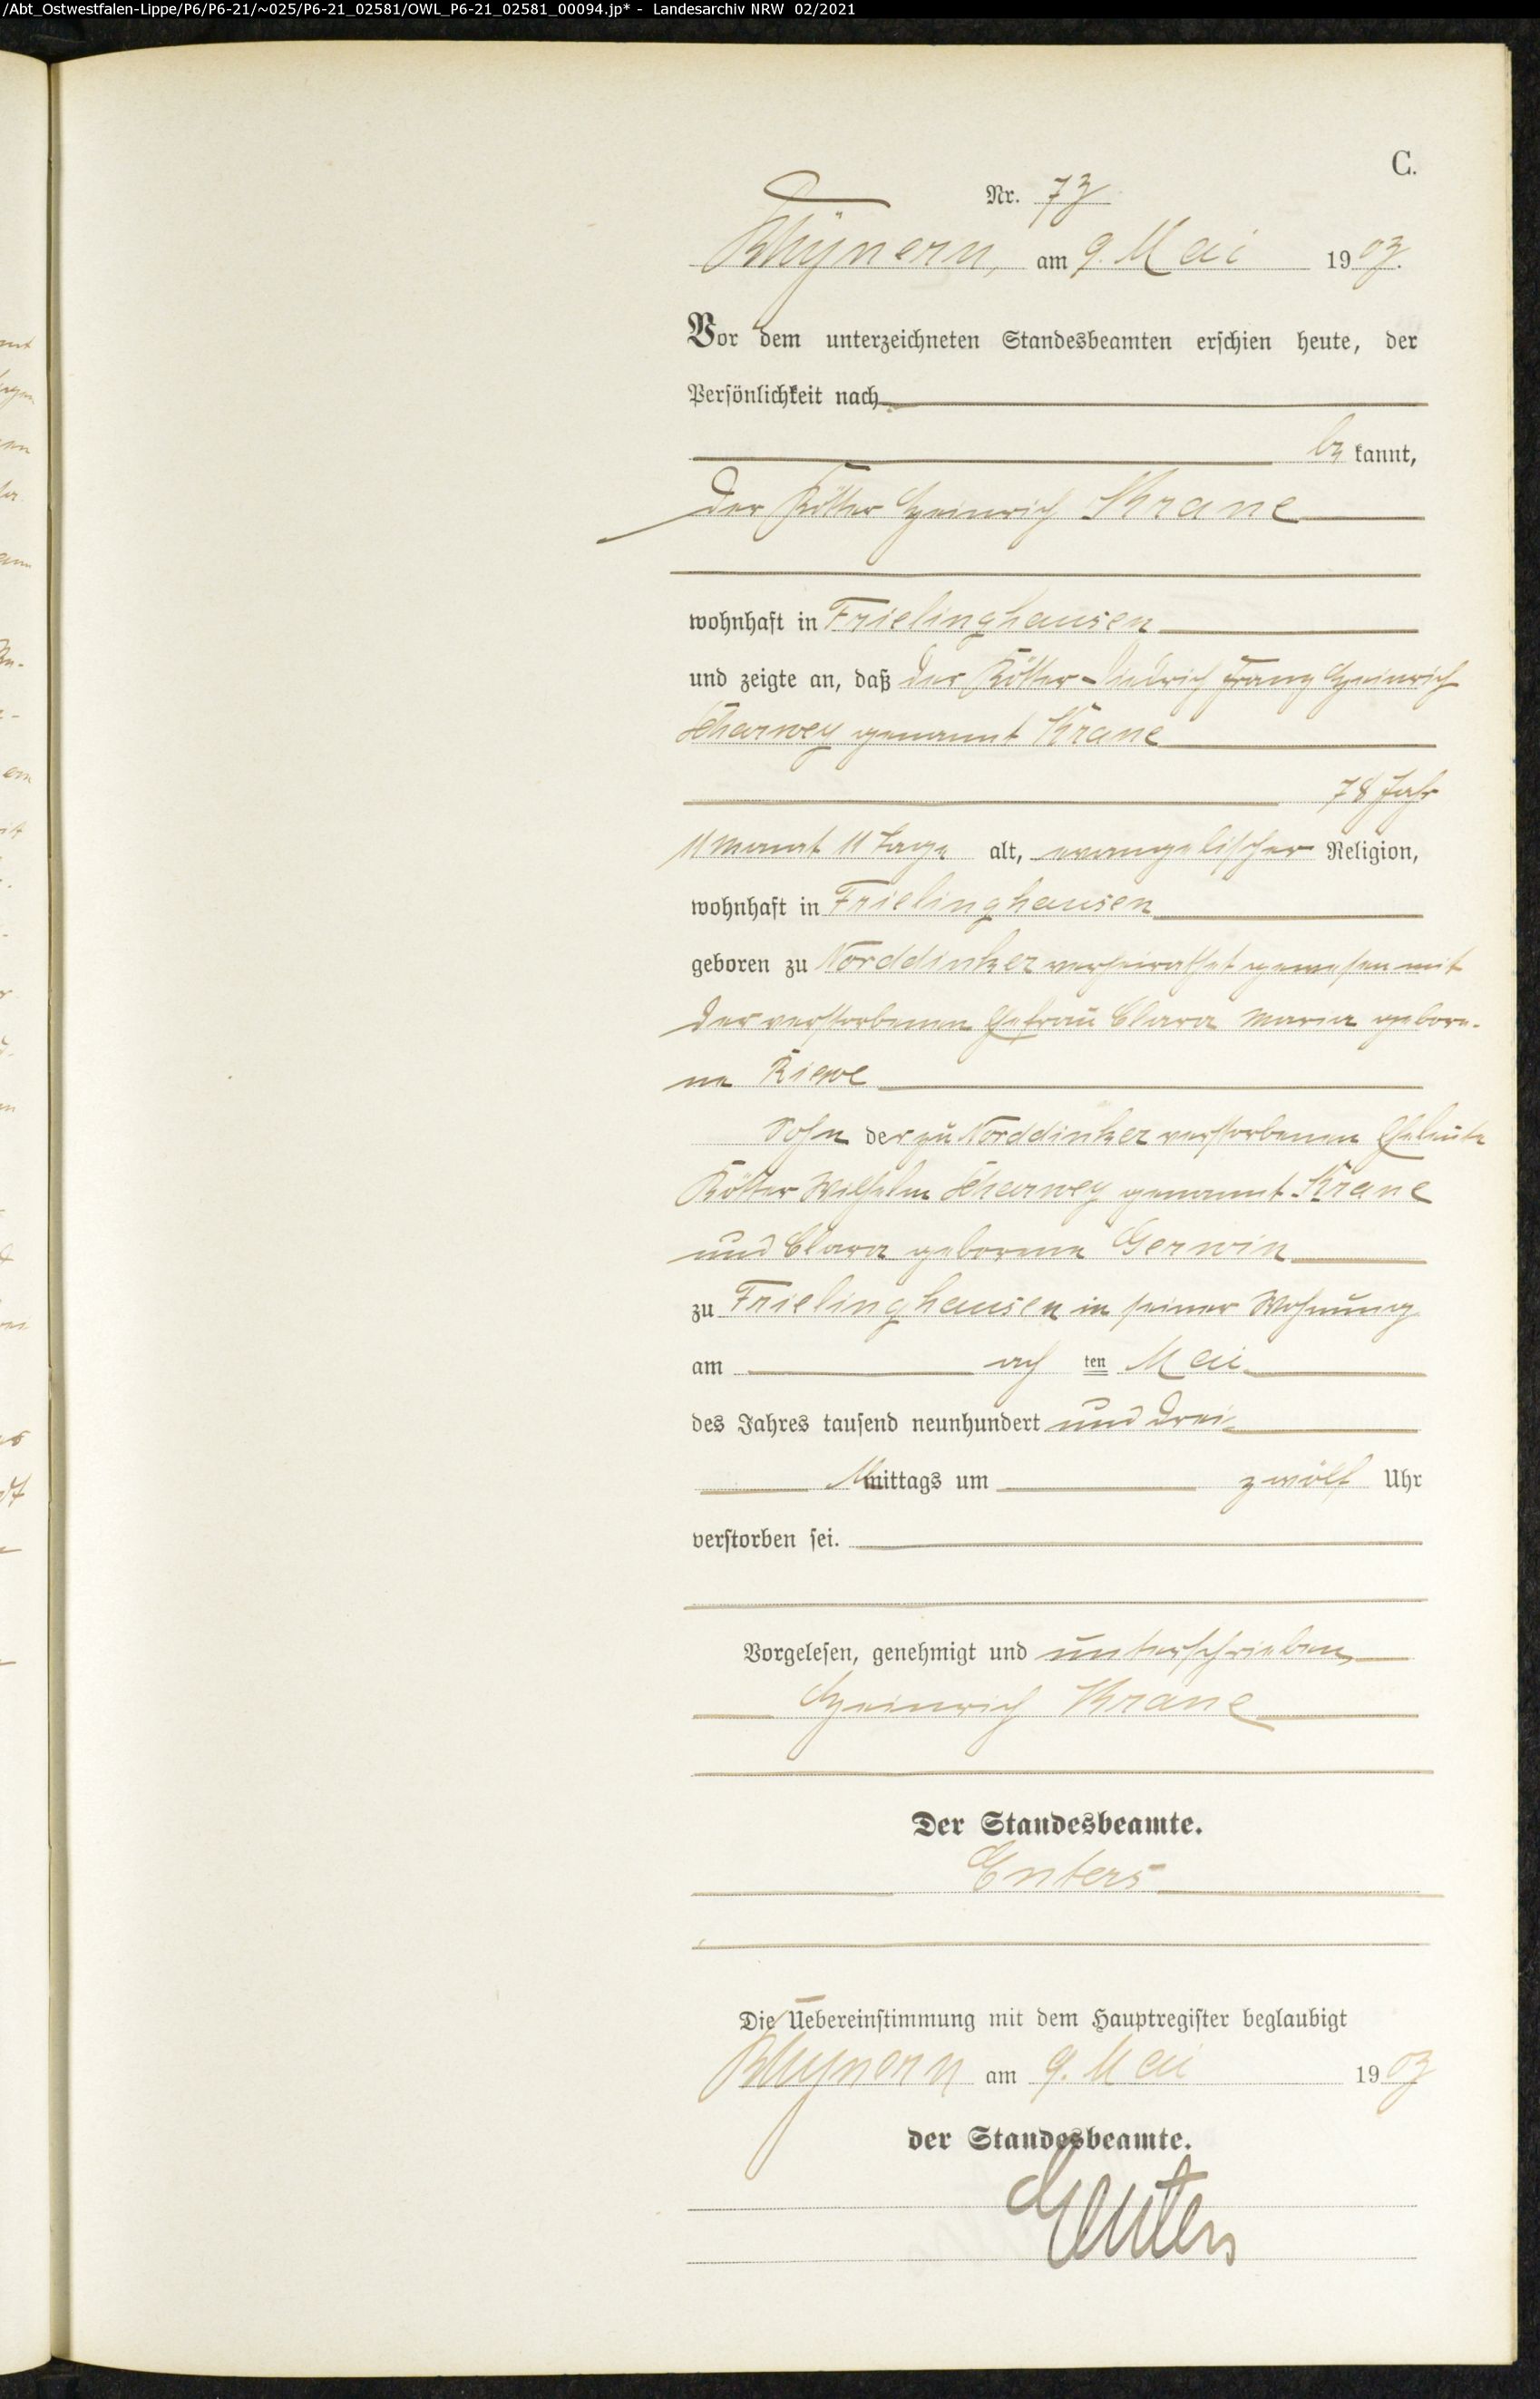 /Abt_Ostwestfalen-Lippe/P6/P6-21/~025/P6-21_02581/OWL_P6-21_02581_00094.jp* - Landesarchiv NRW 02/2021
C.
Nr. 73
Rhynern, am 9. Mai 1903.
Vor dem unterzeichneten Standesbeamten erschien heute, der
Persönlichkeit nach
be kannt,
der Kötter Heinrich Krane
wohnhaft in Frielinghausen
und zeigte an, daß der Kötter Diedrich Franz Heinrich
Scharwey genannt Krane
78 Jahr
11 Monat 11 Tage alt, evangelischer Religion,
wohnhaft in Frielinghausen
geboren zu Norddinker verheirathet gewesen mit
der verstorbenen Ehefrau Clara Maria gebore-
ne Riewe
Sohn der zu Norddinker verstorbenen Eheleute
Kötter Wilhelm Scharwey genannt Krane
und Clara geborene Gerwin
zu Frielinghausen in seiner Wohnung
am ach ten Mai
des Jahres tausend neunhundert und drei
Mmittags um zwölf Uhr
verstorben sei.
Vorgelesen, genehmigt und unterschrieben
Heinrich Krane
Der Standesbeamte.
Enters
Die Uebereinstimmung mit dem Hauptregister beglaubigt
Rhynern am 9. Mai 1903
der Standesbeamte.
Enters